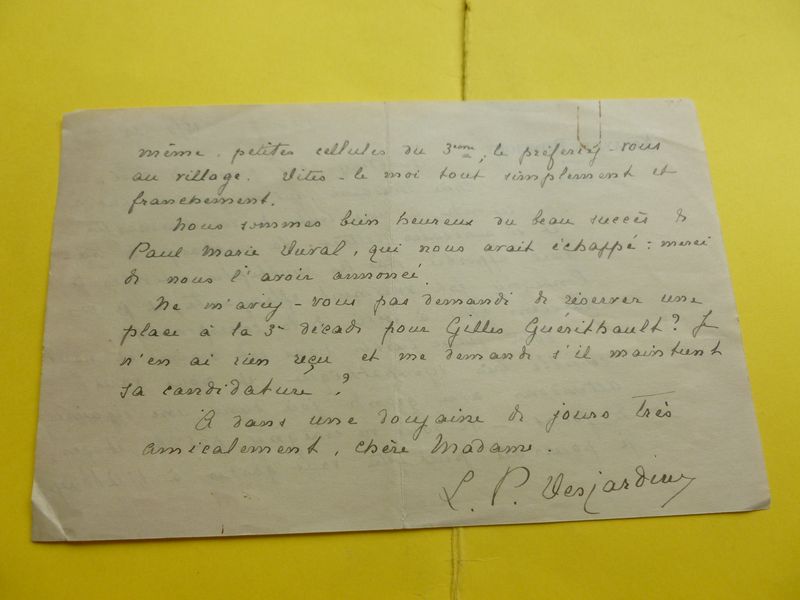 même. petites cellules du 3ème, le préférez-vous
au village. Dites-le moi tout simplement et
franchement.
Nous sommes bien heureux du beau succès de
Paul Marie Duval, qui nous avait échappé : merci
de nous l'avoir annoncé.
Ne m'aviez-vous pas demandé de réserver une
place à la 3e décade pour Gilles Guérithault? Je
n'en ai rien reçu et me demande s'il maintient
sa candidature?
A dans une douzaine de jours très
amicalement, chère Madame.
L. P. Desjardins